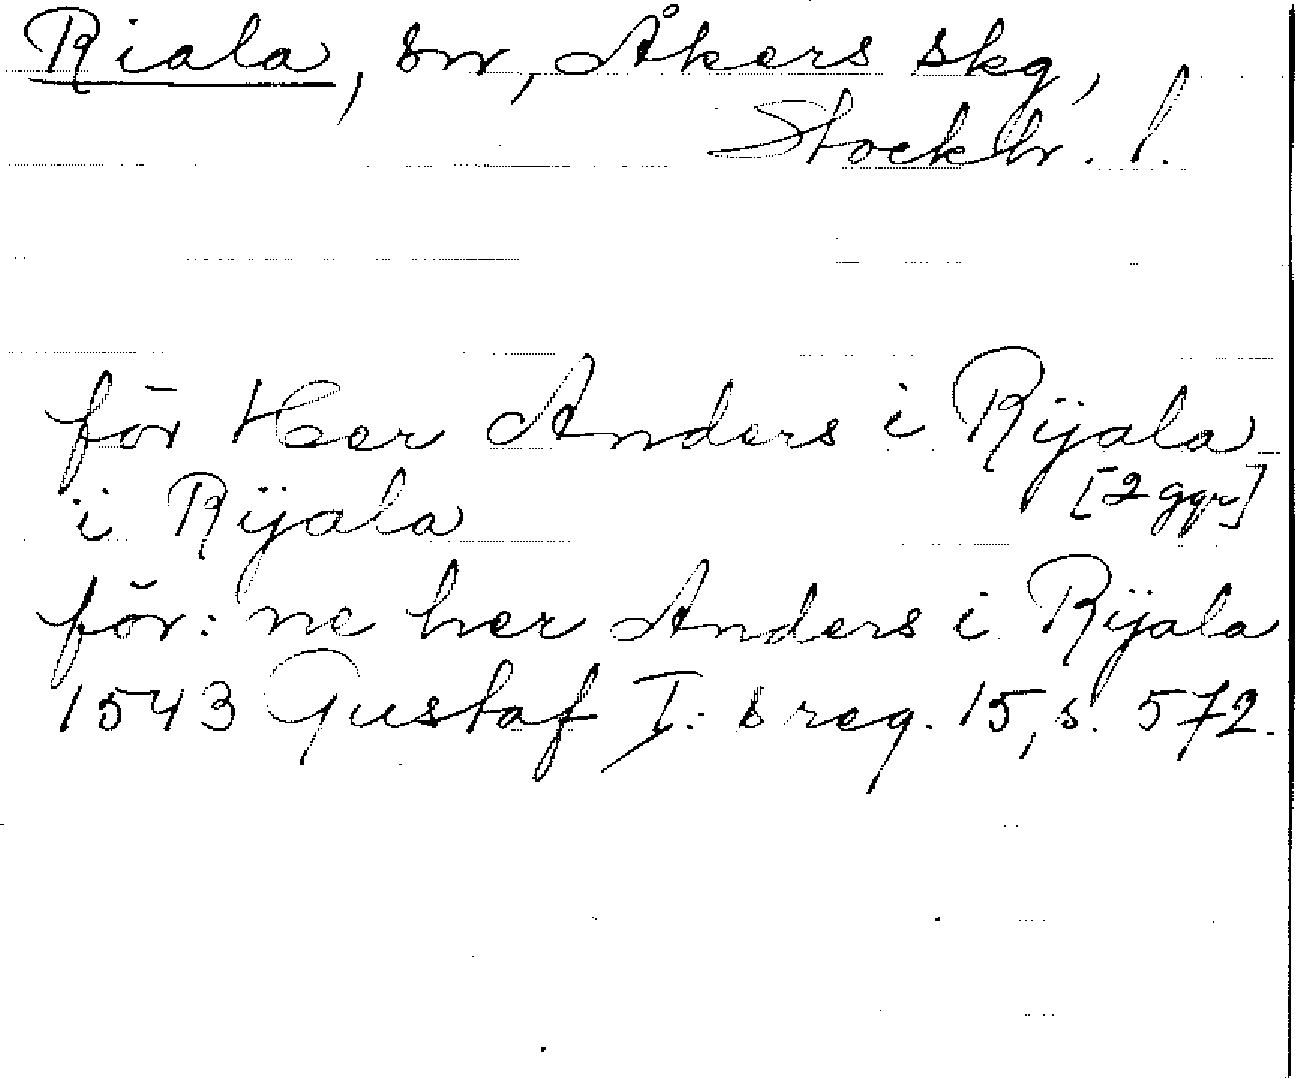 Riala, sn, Åkers skg,
Stockh. l.
för Her Anders i Rÿala
[2 ggr]
i Rÿala
för:ne her Anders i Rÿala
1543 Gustaf I:s reg. 15, s. 572.